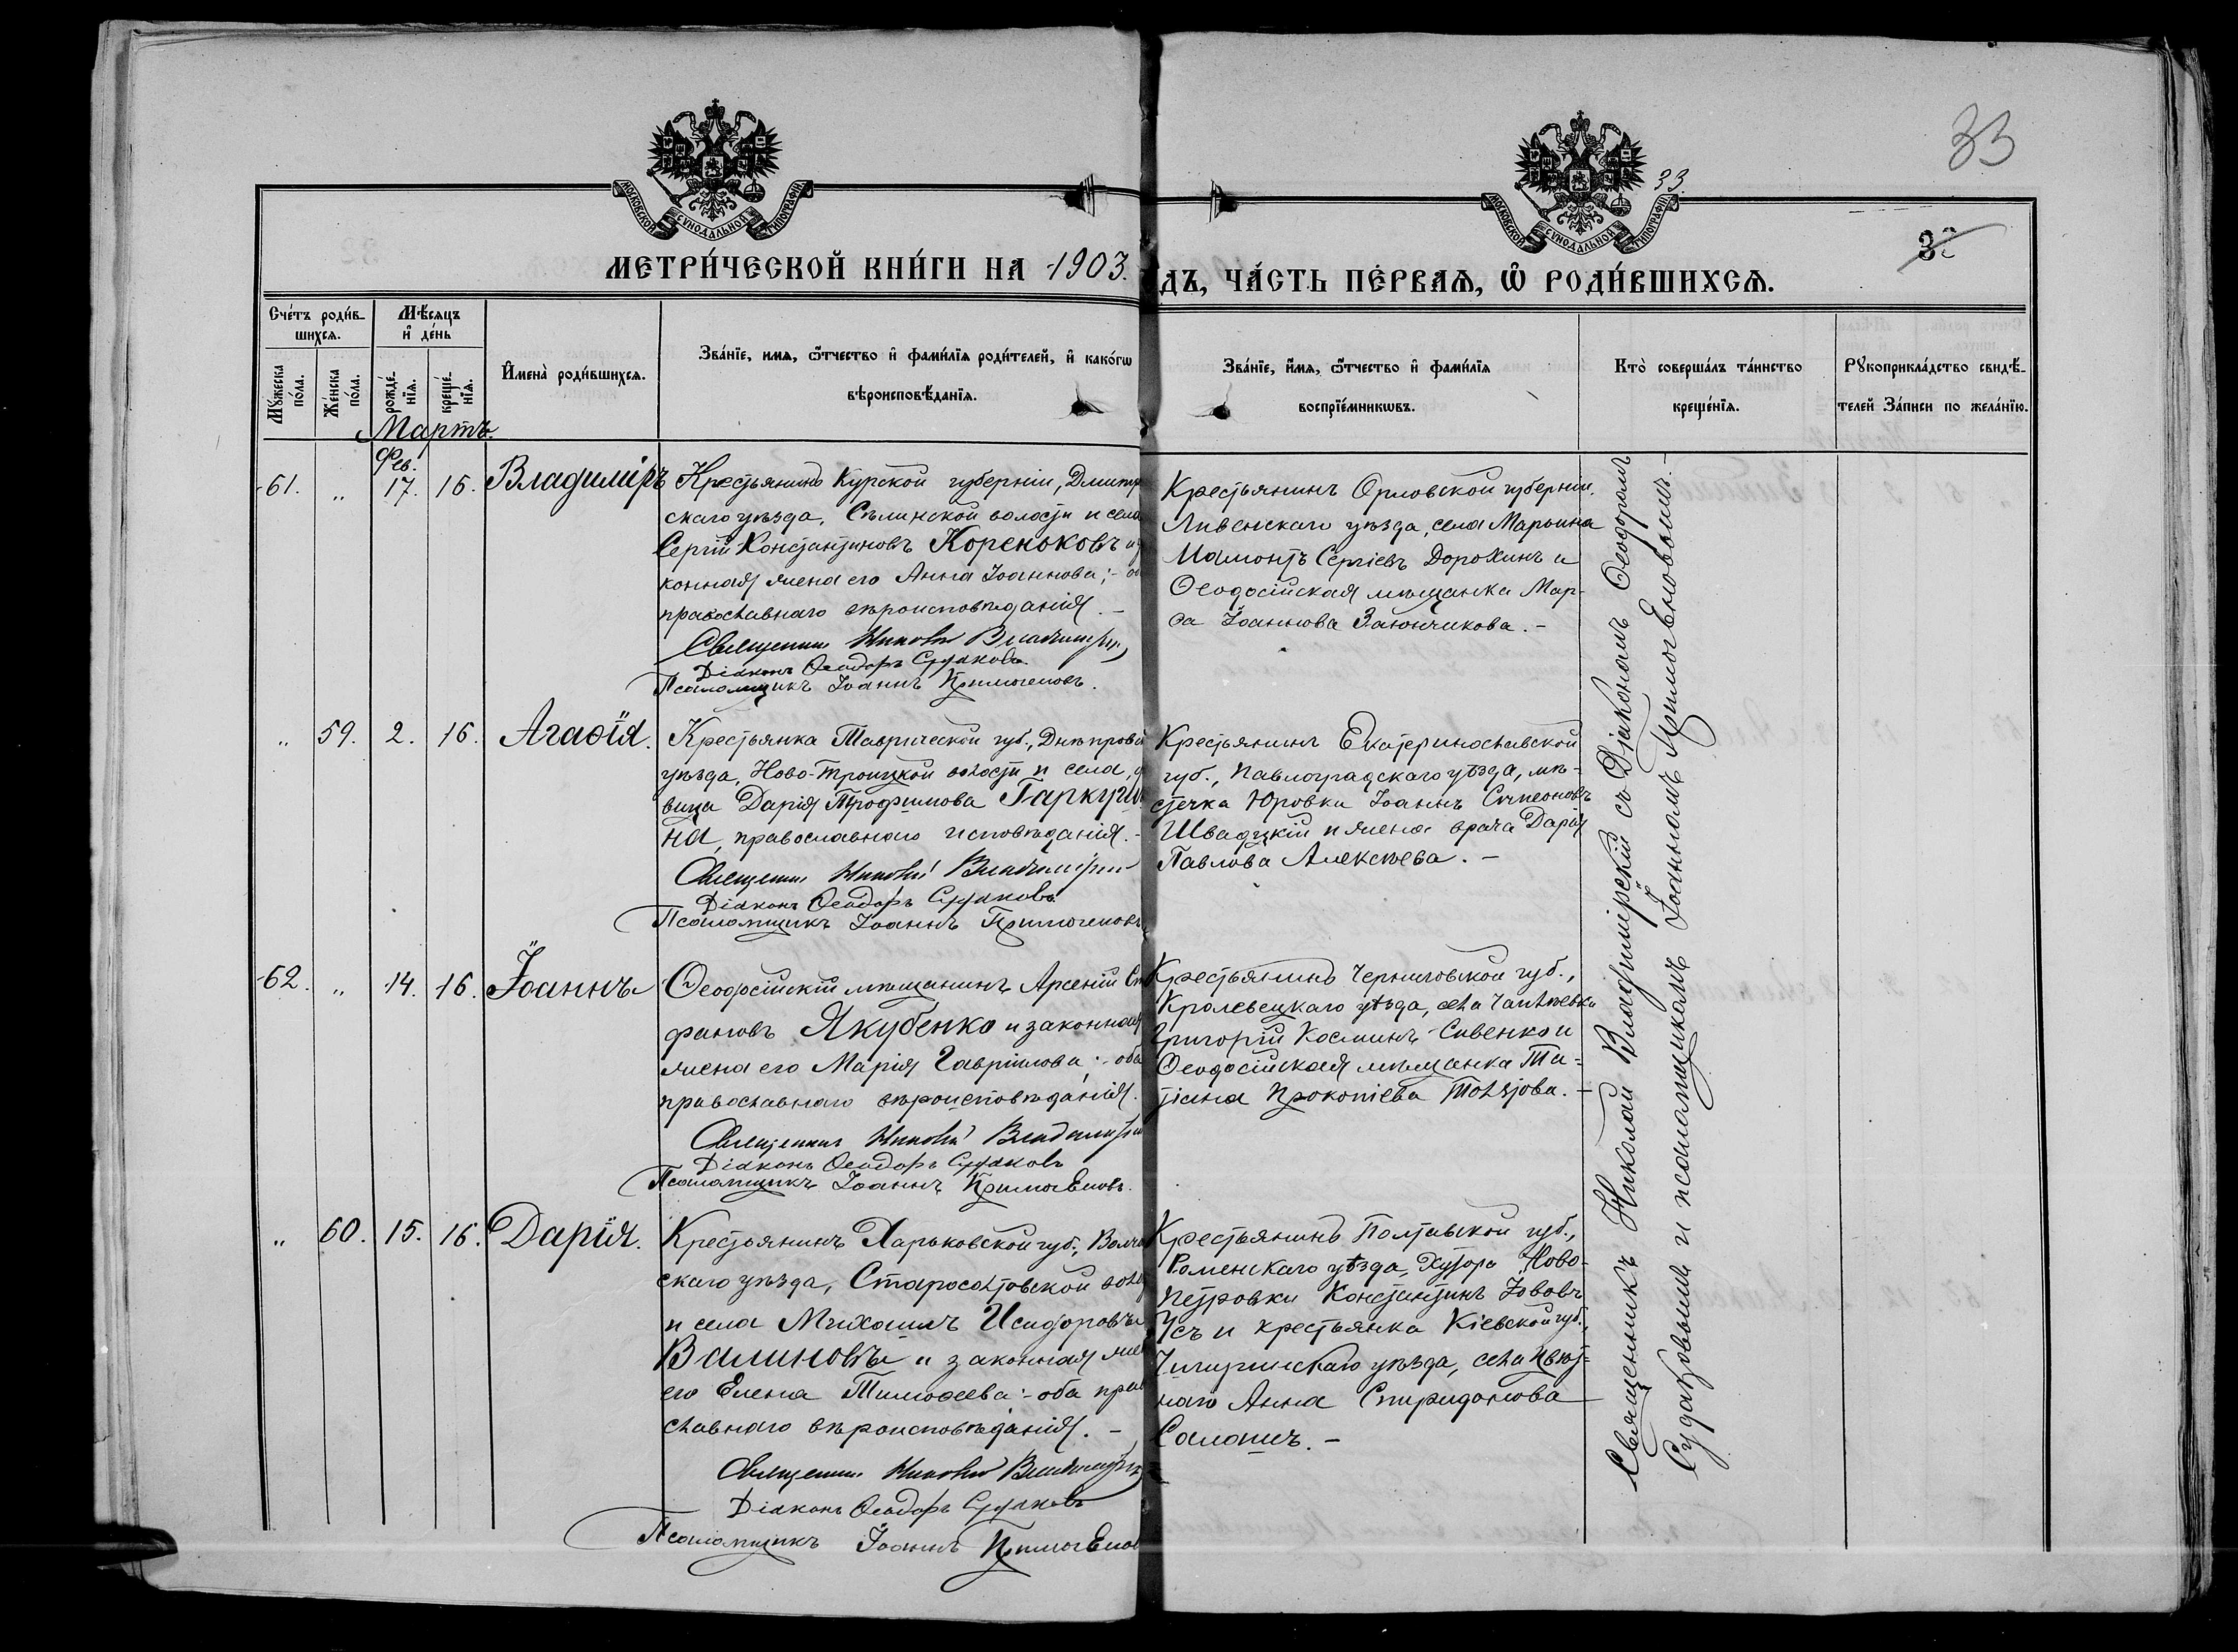 33
33.
МОСКОВСКОЙ СѴНОДАЛЬНОЙ ТИПОГРАФІИ
МОСКОВСКОЙ СѴНОДАЛЬНОЙ ТИПОГРАФІИ
МЕТРИ́ЧЕСКОЙ КНИ́ГИ НА 1903.
ДЪ, ЧА́СТЬ ПЕ́РВАЯ, Ѡ҆ РОДИ́ВШИХСЯ.
Сче́тъ роди́в-
шихся.
Мѣ́сяцъ
и҆ де́нь
Му́жеска по́ла.
Же́нска по́ла.
рожде́-нїя.
креще́-нїя.
И҆мена̀ роди́вшихся.
Зва́нїе, имя, ѿтчество и҆ фами́лїя роди́телей, и҆ како́гѡ
вѣроисповѣ́данїя.
Зва́нїе, и҆́мя, ѿтчество и҆ фами́лїя
воспрїе́мникѡвъ.
Кто̀ соверша́лъ та́инство
креще́нїя.
Рꙋкоприкла́дство свидѣ́-
телей За́писи по жела́нїю.
Мартъ.
Фев.
61. „ 17. 16. Владиміръ
Крестьянинъ Курской губерніи, Дмитр
скаго уѣзда, Селинской волости и села
Сергій Константиновъ Кореньковъ и з
конная жена его Анна Іоаннова; - об
православнаго вѣроисповѣданія. -
Священникъ Николай Владимірск
Діаконъ Ѳеодоръ Судаковъ
Псаломщикъ Іоаннъ Примогеновъ.
Крестьянинъ Орловской губерніи,
Ливенскаго уѣзда, села Марьина
Мамонтъ Сергіевъ Дорохинъ и
Ѳеодосійская мѣщанка Мар-
ѳа Іоаннова Заюнчикова. -
„ 59. 2. 16. Агаѳія.
Крестьянка Таврической губ., Днѣпровск
уѣзда, Ново-Троицкой волости и села, д
вица Дарія Трофимова Гаркуши
на, православнаго исповѣданія. -
Священникъ Николай Владимірск
Діаконъ Ѳеодоръ Судаковъ
Псаломщикъ Іоаннъ Примогеновъ
Крестьянинъ Екатеринославской
губ., Павлоградскаго уѣзда, мѣ-
стечка Юровки Іоаннъ Симеоновъ
Швадцкій и жена врача Дарія
Павлова Алексѣева. -
62. „ 14. 16. Іоаннъ
Ѳеодосійскій мѣщанинъ Арсеній Ст
фановъ Якубенко и законная
жена его Марія Гавріилова; - оба
православнаго вѣроисповѣданія.
Священникъ Николай Владимірск
Діаконъ Ѳеодоръ Судаковъ
Псаломщикъ Іоаннъ Примогеновъ.
Крестьянинъ Черниговской губ.,
Кролевецкаго уѣзда, села Чаплѣевки
Григорій Косминъ Сивенко и
Ѳеодосійская мѣщанка Та-
тіана Прокопіева Толстова. -
„ 60. 15. 16. Дарія.
Крестьянинъ Харьковской губ., Волча
скаго уѣзда, Старосолтовской вол
и села Михаилъ Исидоровъ
Валиновъ и законная же
его Елена Тимоѳеева: - оба прав
славнаго вѣроисповѣданія. -
Священникъ Николай Владимірск
Діаконъ Ѳеодоръ Судаковъ
Псаломщикъ Іоаннъ Примогенов
Крестьянинъ Полтавской губ.,
Роменскаго уѣзда, Хутора Ново-
петровки Константинъ Іововъ
Усъ и крестьянка Кіевской губ.,
Чигиринскаго уѣзда, села Цвѣт-
наго Анна Спиридонова
Саломъ. -
Священникъ Николай Владимірскій съ Діакономъ Ѳеодоромъ
Судаковымъ и псаломщикомъ Іоанномъ Примогеновымъ. -